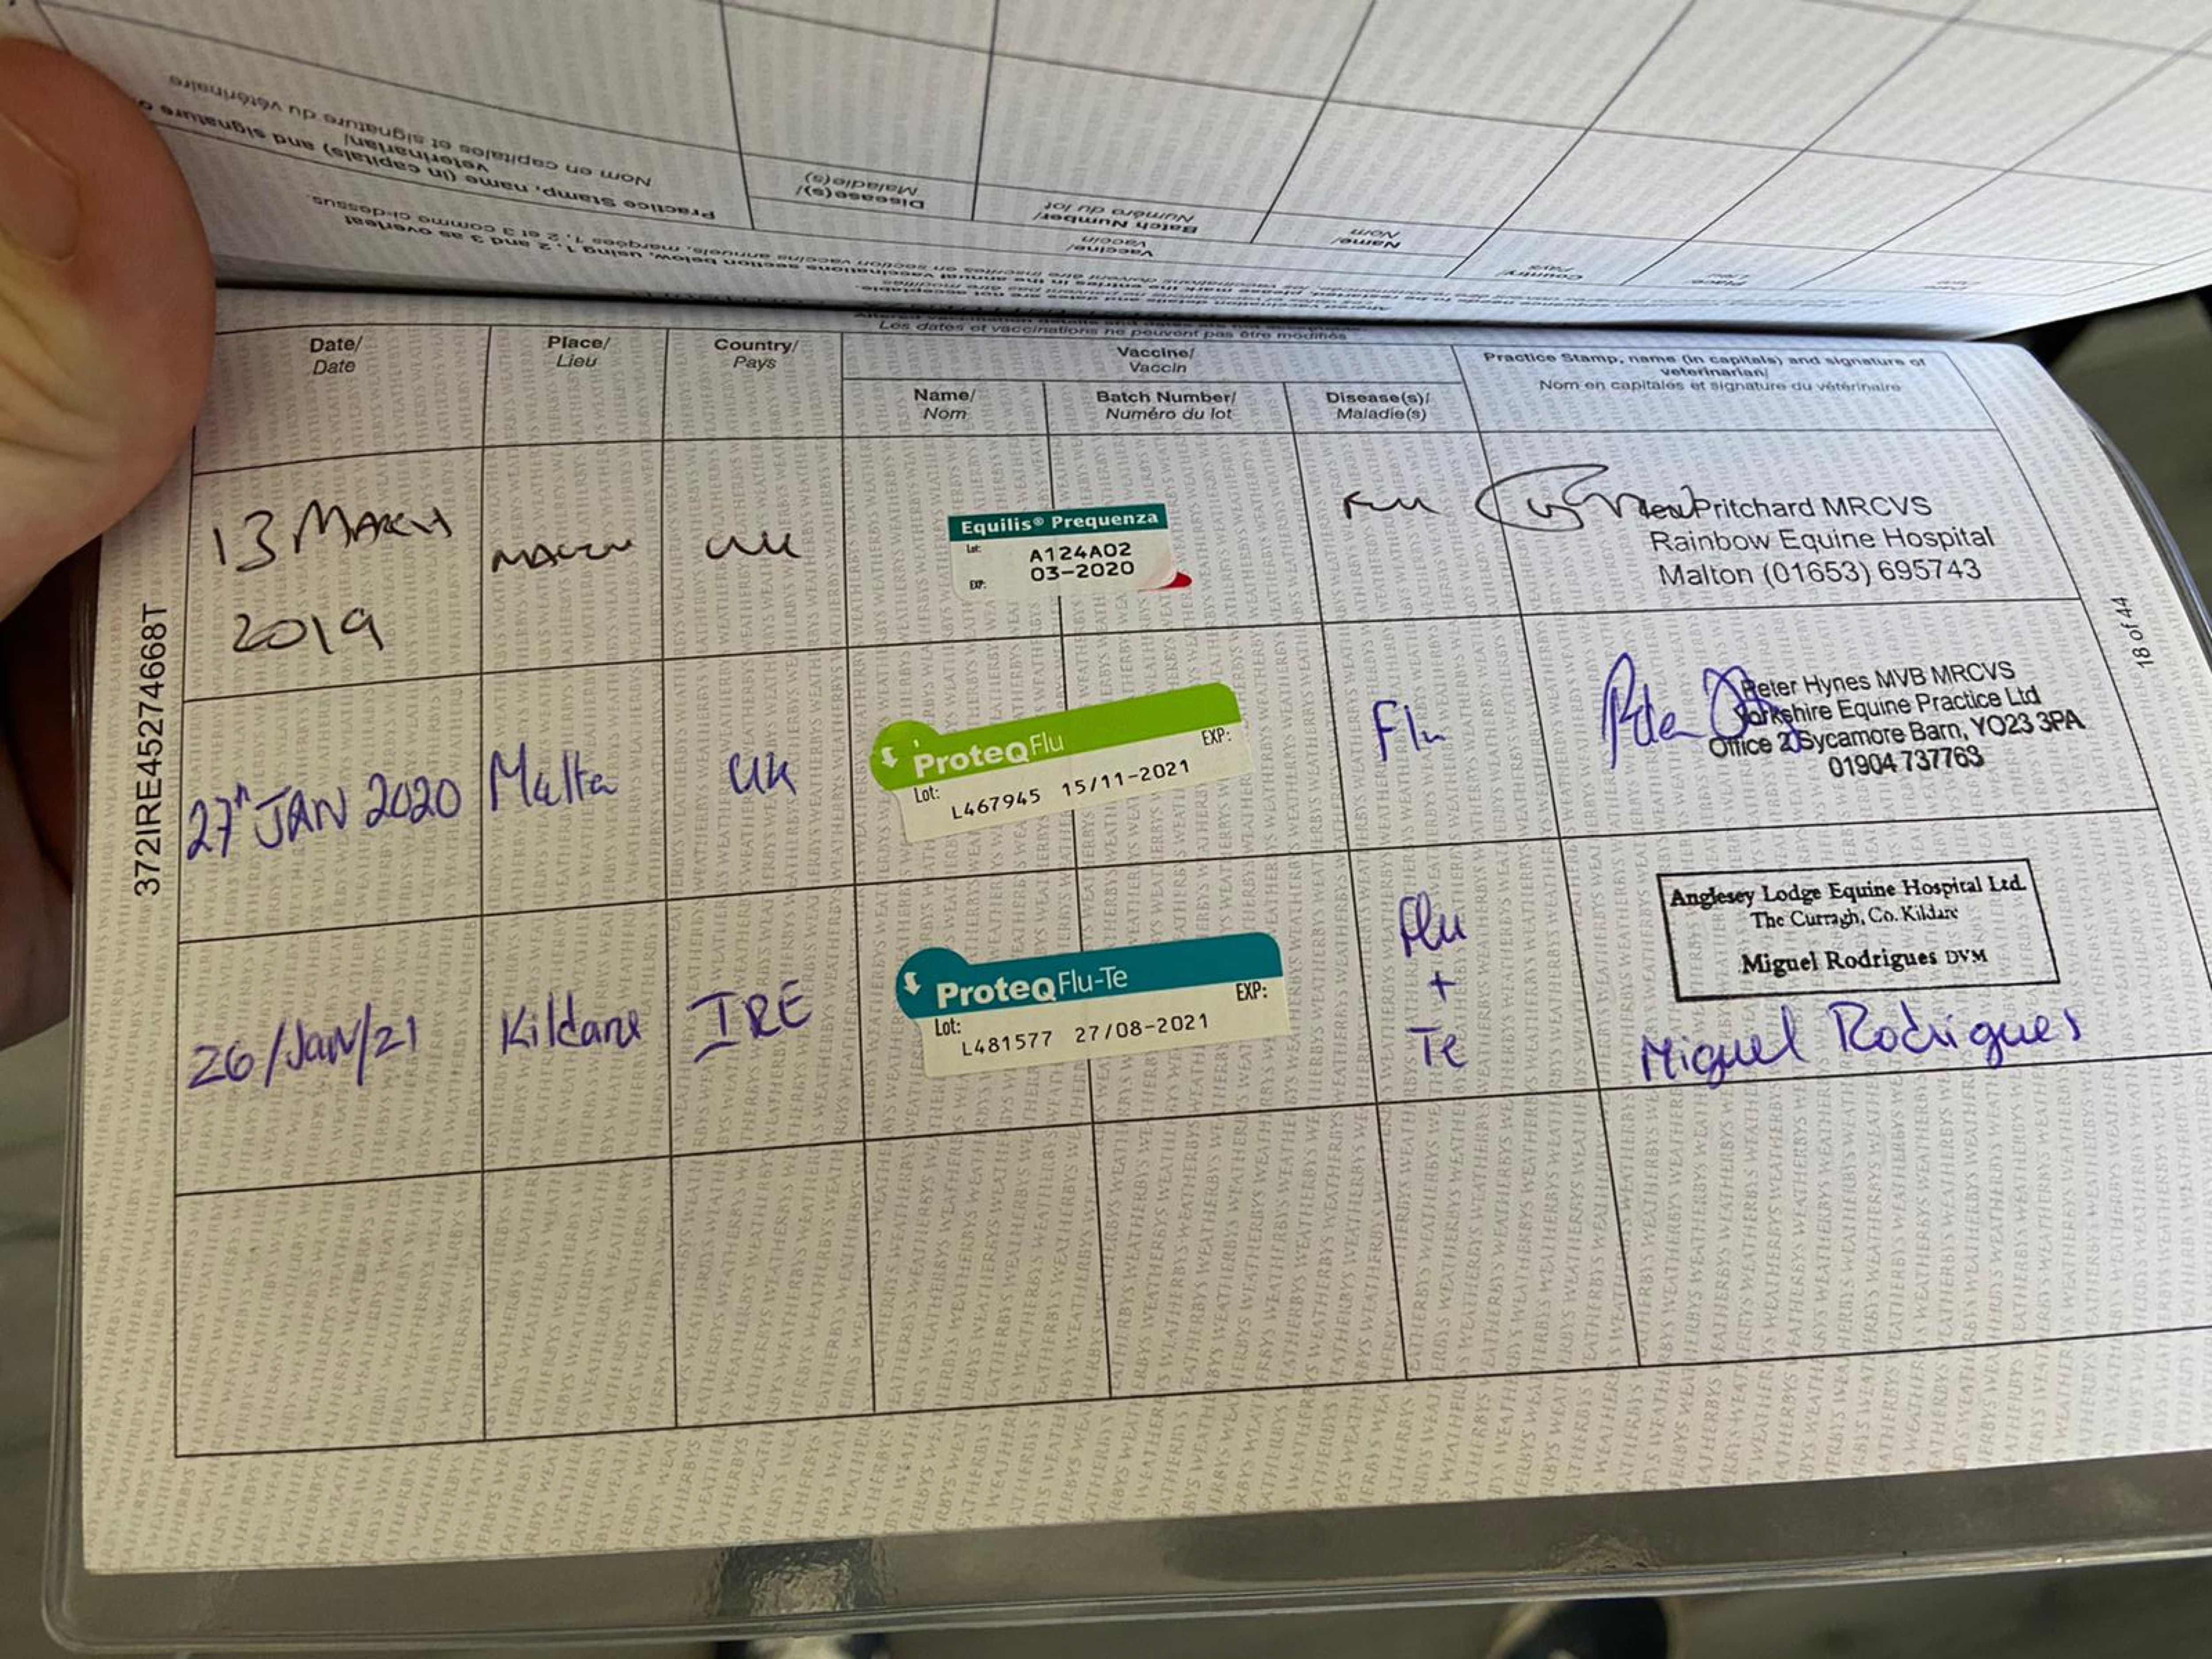 Nom en capitales et signature du vétérinaire
Practice Stamp, name (in capitals) and signature of
veterinarian/
Disease(s)/
Maladie(s)
Batch Number/
Numéro du lot
Vaccine/
Vaccin
Name/
Nom
Country/
Pays
Place/
Lieu
Les dates et vaccinations ne peuvent pas être modifiés
Date/
Date
Place/
Lieu
Country/
Pays
Vaccine/
Vaccin
Name/
Nom
Batch Number/
Numéro du lot
Disease(s)/
Maladie(s)
Practice Stamp, name (in capitals) and signature of
veterinarian/
Nom en capitales et signature du vétérinaire
13 MARCH
2019
UK
Equilis® Prequenza
Lot: A124A02
EXP: 03-2020
Flu
Pritchard MRCVS
Rainbow Equine Hospital
Malton (01653) 695743
27th JAN 2020
Malton
UK
ProteqFlu
EXP:
Lot: L467945 15/11-2021
Flu
Peter Hynes MVB MRCVS
Yorkshire Equine Practice Ltd
Office 2 Sycamore Barn, YO23 3PA
01904 737763
26/Jan/21
Kildare
IRE
ProteqFlu-Te
EXP:
Lot: L481577 27/08-2021
Flu
+
Te
Anglesey Lodge Equine Hospital Ltd.
The Curragh, Co. Kildare
Miguel Rodrigues DVM
Miguel Rodrigues
372IRE45274668T
18 of 44
WEATHERBYS